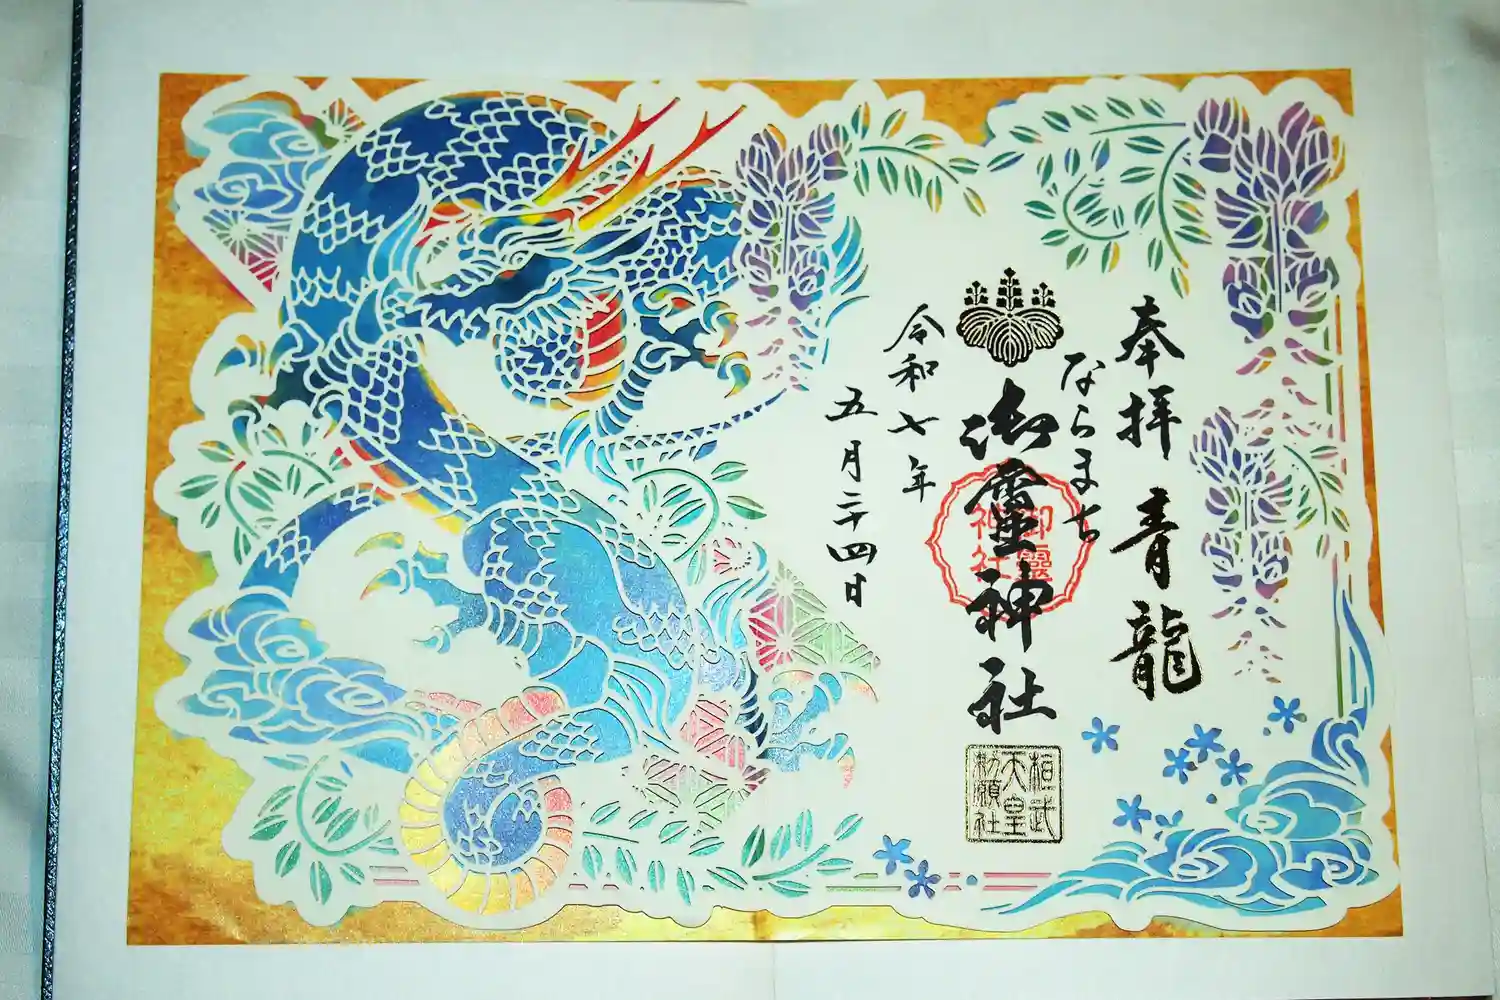 奉拝 青龍
ならまち
御霊神社
御霊神社
桓武天皇勅願社
令和七年
五月二十四日